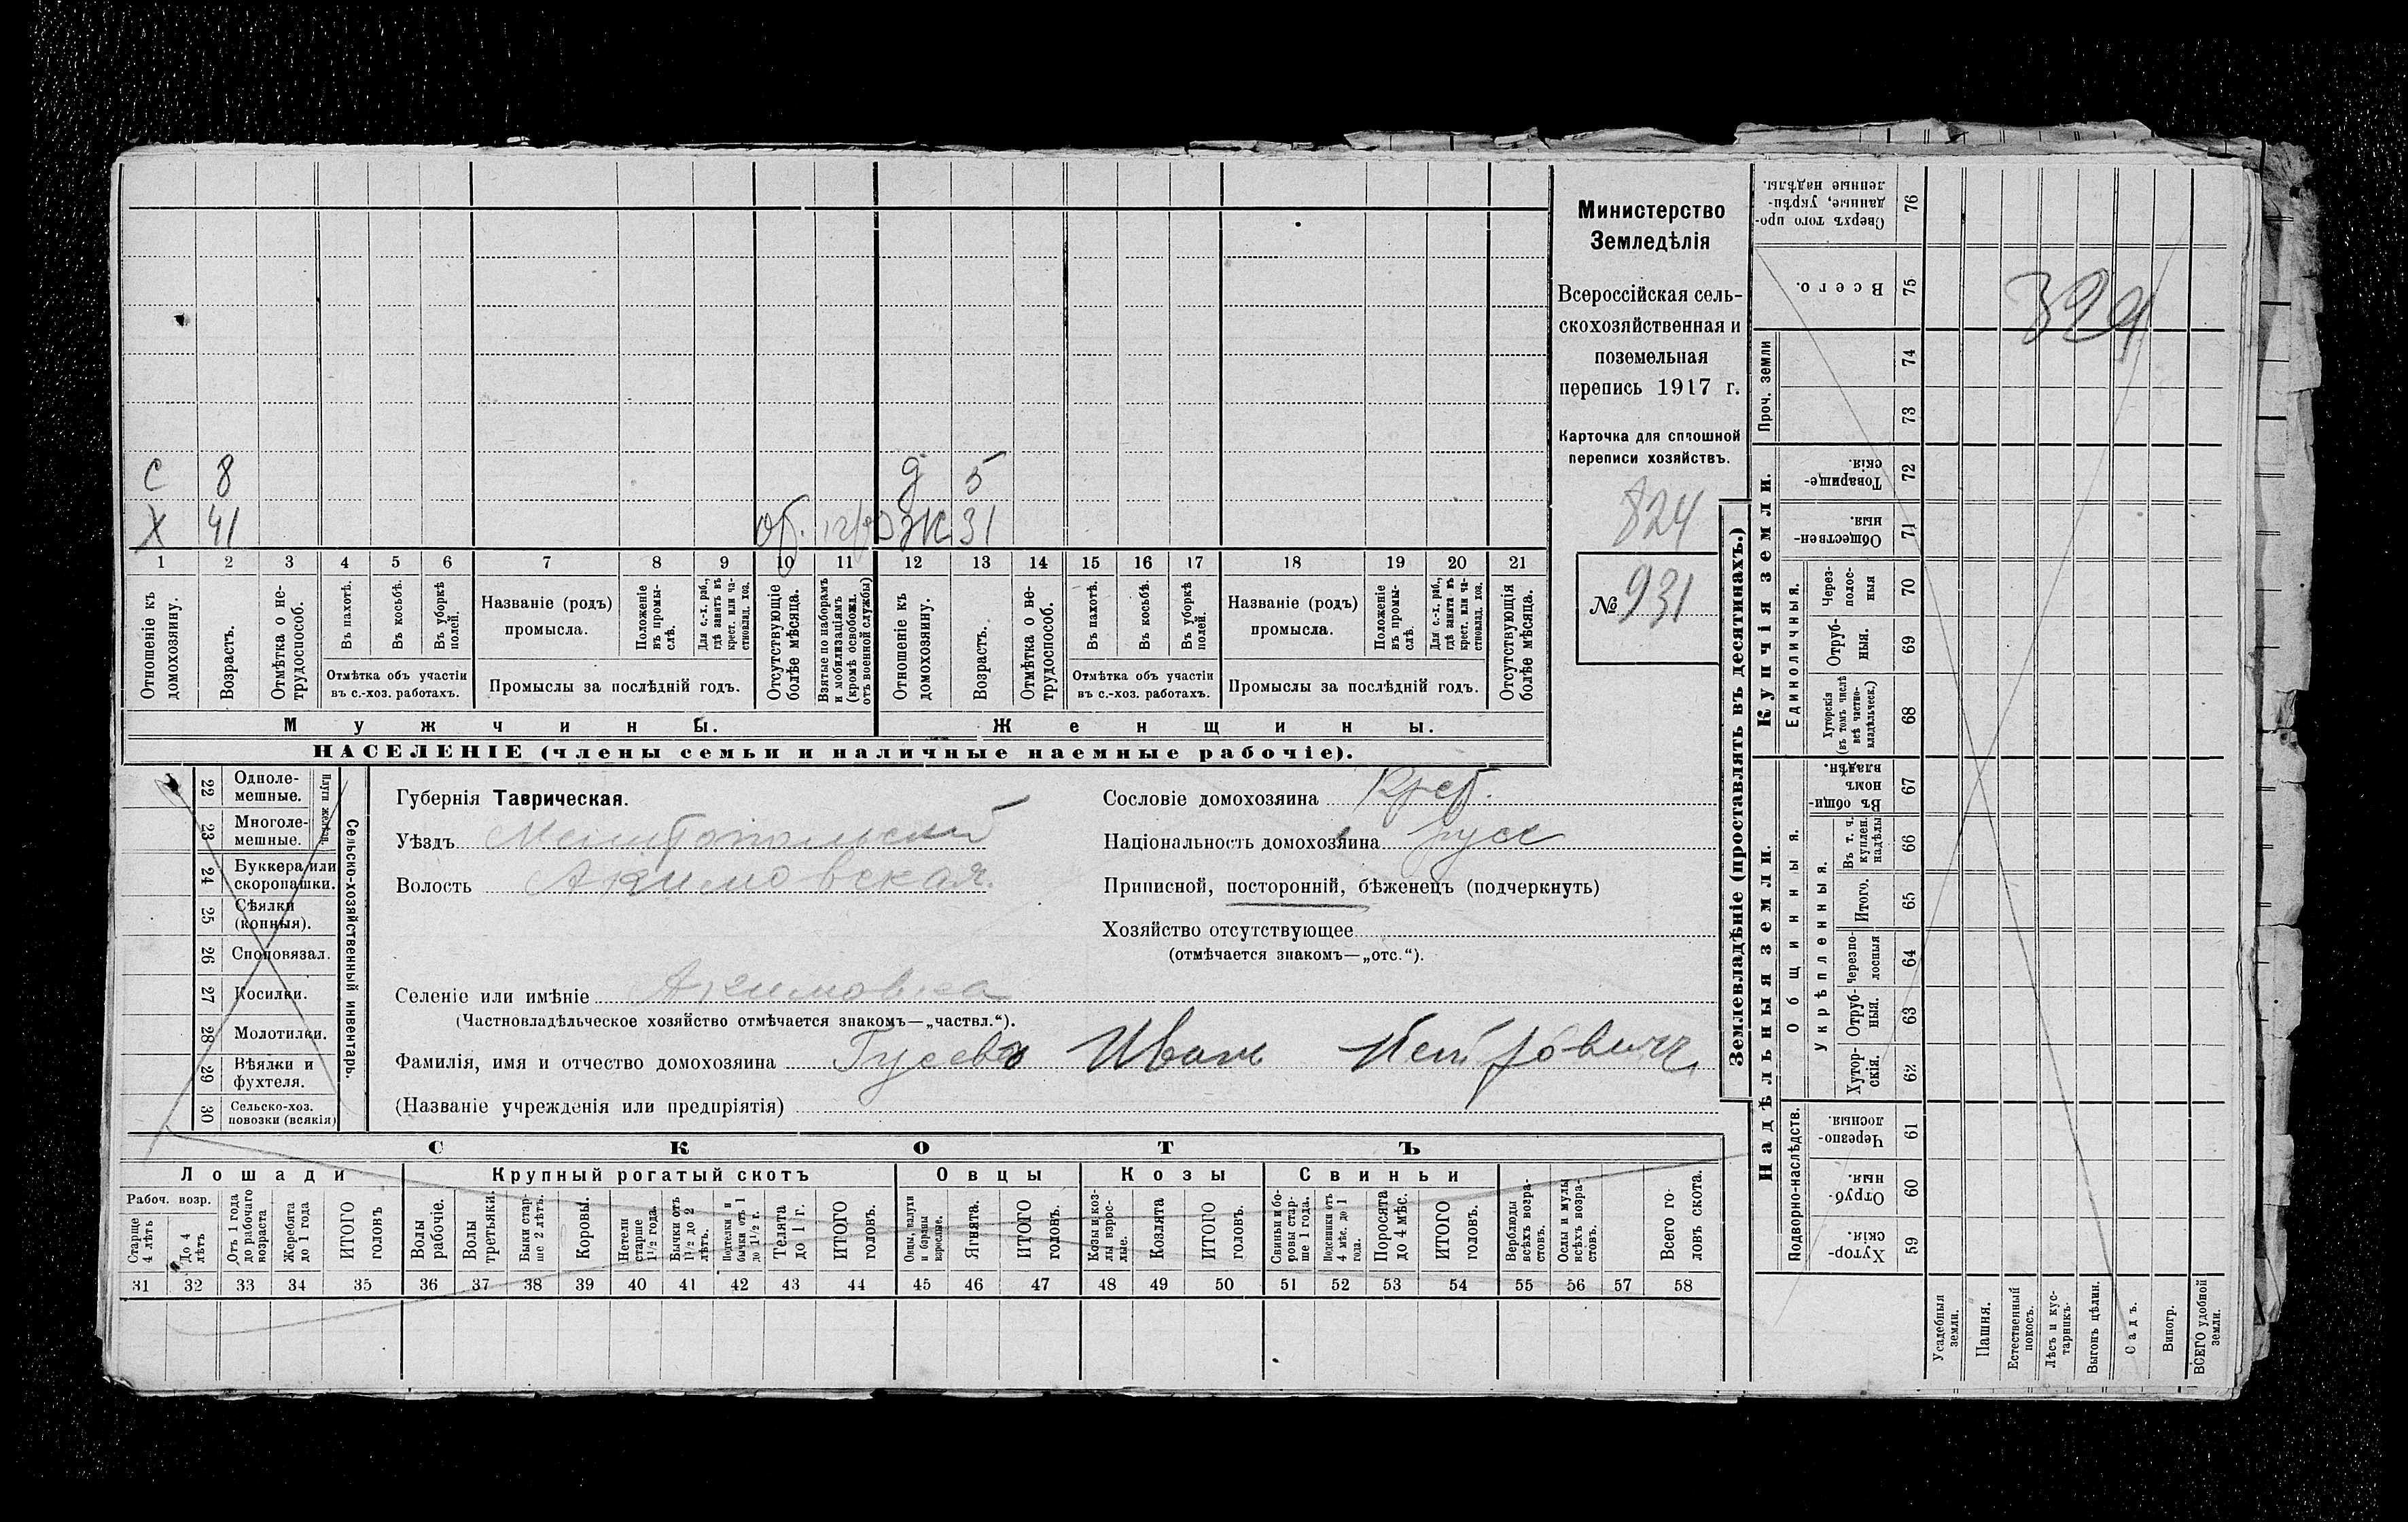 С 8 д 5
Х 41 об. Ж 31
1 2 3 4 5 6 7 8 9 10 11 12 13 14 15 16 17 18 19 20 21
Отношеніе къ домохозяину.
Возрастъ.
Отмѣтка о не-трудоспособ.
Въ пахотѣ.
Въ косьбѣ.
Въ уборкѣ полей.
Отмѣтка объ участіи
въ с.-хоз. работахъ.
Названіе (родъ)
промысла.
Положеніе въ промы-слѣ.
Для с.-х. раб., гдѣ занятъ въ крест. или ча-стновлад. хоз.
Промыслы за послѣдній годъ.
Отсутствующіе болѣе мѣсяца.
Взятые по наборамъ и мобилизаціямъ (кромѣ освобожд. отъ военной службы)
Отношеніе къ домохозяину.
Возрастъ.
Отмѣтка о не-трудоспособ.
Въ пахотѣ.
Въ косьбѣ.
Въ уборкѣ полей.
Отмѣтка объ участіи
въ с.-хоз. работахъ.
Названіе (родъ)
промысла.
Положеніе въ промы-слѣ.
Для с.-х. раб., гдѣ занята въ крест. или ча-стновлад. хоз.
Промыслы за послѣдній годъ.
Отсутствующія болѣе мѣсяца.
Мужчины.
Женщины.
НАСЕЛЕНІЕ (члены семьи и наличные наемные рабочіе).
Министерство
Земледѣлія
Всероссійская сель-
скохозяйственная и
поземельная
перепись 1917 г.
Карточка для сплошной
переписи хозяйствъ.
824
№ 931
22 Одноле-мешные.
23 Многоле-мешные.
Плуги желѣзн.
24 Буккера или скоропашки.
25 Сѣялки (конныя).
26 Сноповязал.
27 Косилки.
28 Молотилки.
29 Вѣялки и фухтеля.
30 Сельско-хоз. повозки (всякія)
Сельско-хозяйственный инвентарь.
Губернія Таврическая.
Уѣздъ Мелитопольский
Волость Акимовская.
Селеніе или имѣніе Акимовка
(Частновладѣльческое хозяйство отмѣчается знакомъ—„частвл.“).
Фамилія, имя и отчество домохозяина Гусевъ Иван Петрович.
(Названіе учрежденія или предпріятія)
Сословіе домохозяина Крест.
Національность домохозяина русс
Приписной, посторонній, бѣженецъ (подчеркнуть)
Хозяйство отсутствующее
(отмѣчается знакомъ—„отс.“).
СКОТЪ
Лошади
Крупный рогатый скотъ
Овцы
Козы
Свиньи
Рабоч. возр.
Старше 4 лѣтъ
До 4 лѣтъ
Отъ 1 года до рабочаго возраста
Жеребята до 1 года
ИТОГО головъ
Волы рабочіе.
Волы третьяки.
Быки стар-ше 2 лѣтъ.
Коровы.
Нетели старше 1½ года.
Бычки отъ 1½ до 2 лѣтъ.
бычки отъ 1 до 1½ г.
Телята до 1 г.
ИТОГО головъ.
Овцы, валухи и бараны взрослые.
Ягнята.
ИТОГО головъ.
Козы и коз-лы взрос-лые.
Козлята
ИТОГО головъ.
Свиньи и бо-ровы стар-ше 1 года.
Подсвинки отъ 4 мѣс. до 1 года.
Поросята до 4 мѣс.
ИТОГО головъ.
Верблюды всѣхъ возра-стовъ.
Ослы и мулы всѣхъ возра-стовъ.
Всего го-ловъ скота.
31 32 33 34 35 36 37 38 39 40 41 42 43 44 45 46 47 48 49 50 51 52 53 54 55 56 57 58
Землевладѣніе (проставлять въ десятинахъ.)
Купчія земли.
Надѣльныя земли.
Сверхъ того про-данные, укрѣп-ленные надѣлы. 76
Всего. 75
Проч. земли 74 73
Товарище-скія. 72
Обществен-ныя. 71
Единоличныя.
Через-полос-ныя 70
Отруб-ныя. 69
Хуторскія (въ томъ числѣ всѣ частно-владѣльческ.) 68
Общинныя.
Въ общи-номъ владѣн. 67
Укрѣпленныя.
Въ т. ч. куплен. надѣлы 66
Итого. 65
черезпо-лосныя 64
Отруб-ныя. 63
Хутор-скія. 62
Подворно-наслѣдств.
Черезпо-лосныя. 61
Отруб-ныя. 60
Хутор-скія. 59
Усадебныя земли.
Пашня.
Естественный покосъ.
Лѣсъ и кус-тарникъ.
Выгонъ цѣлин.
Садъ.
Виногр.
ВСЕГО удобной земли.